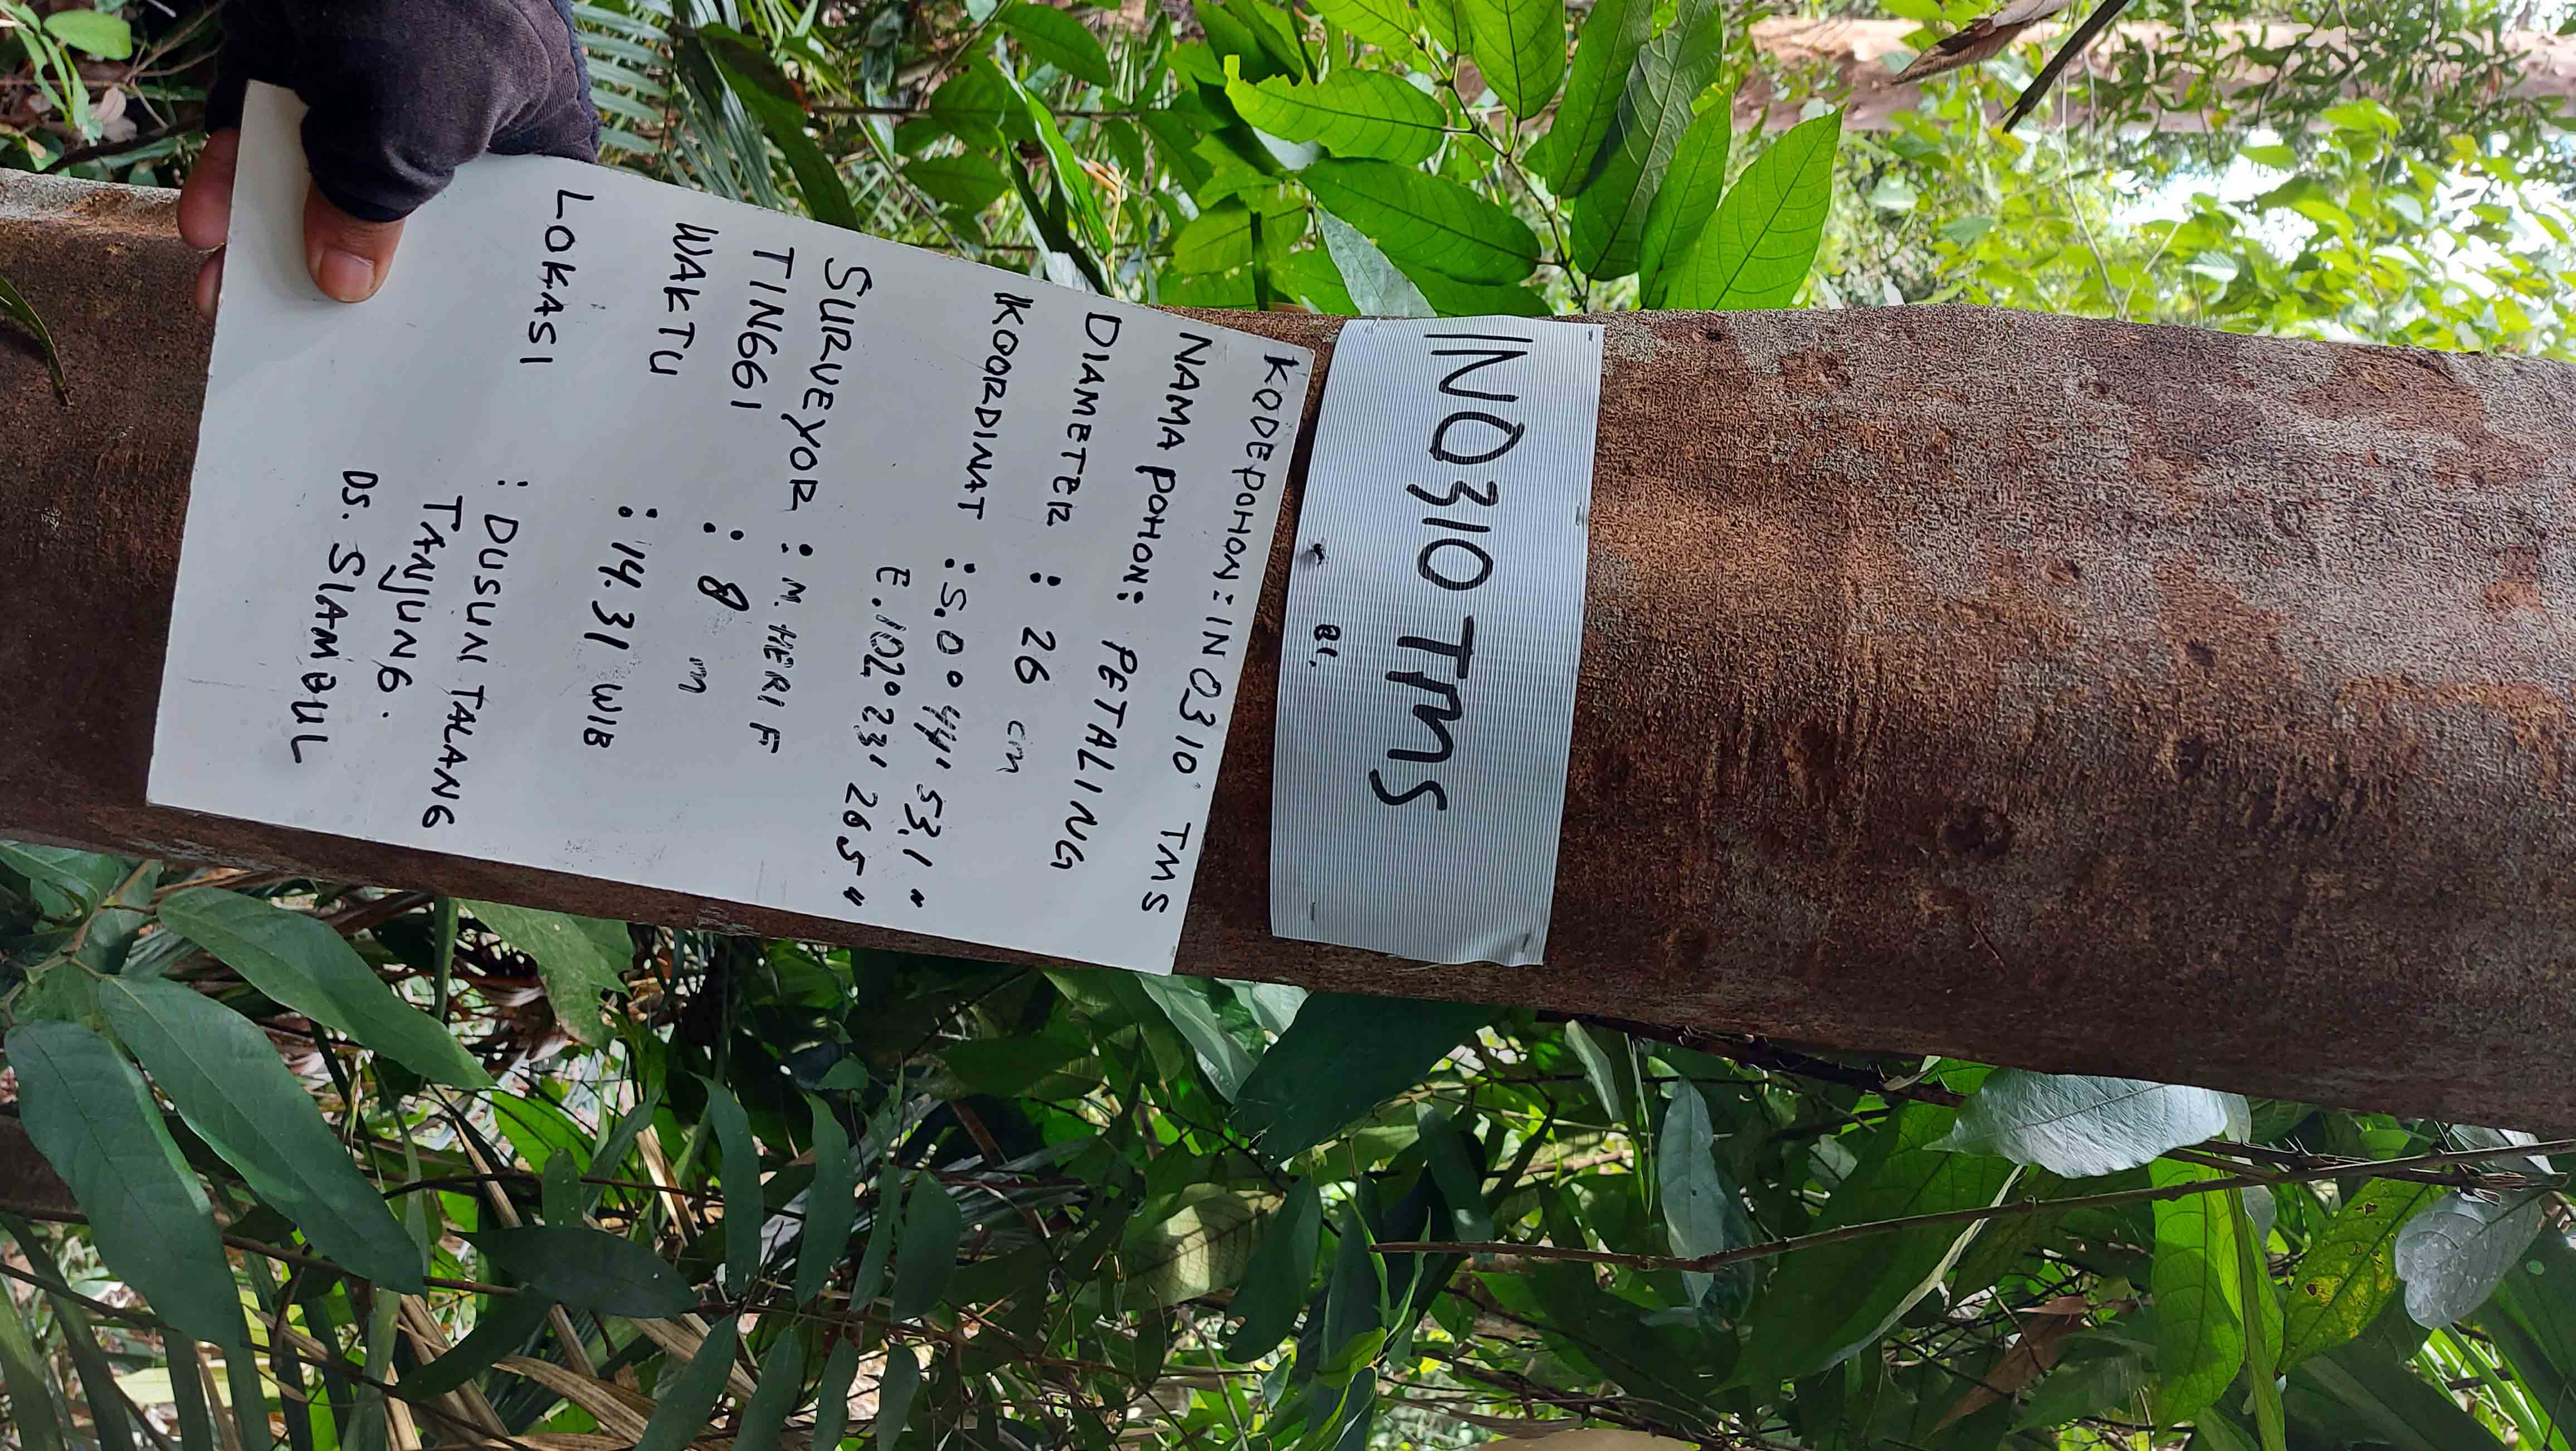 INO310 TMS
KODE POHON : INO310 TMS
NAMA POHON : PETALING
DIAMETER : 26 cm
KOORDINAT : S. 0° 44' 53,1"
E. 102° 23' 26 5"
SURVEYOR : M. HERI F
TINGGI : 8 m
WAKTU : 14.31 WIB
LOKASI : DUSUN TALANG
TANJUNG.
DS. SIAMBUL